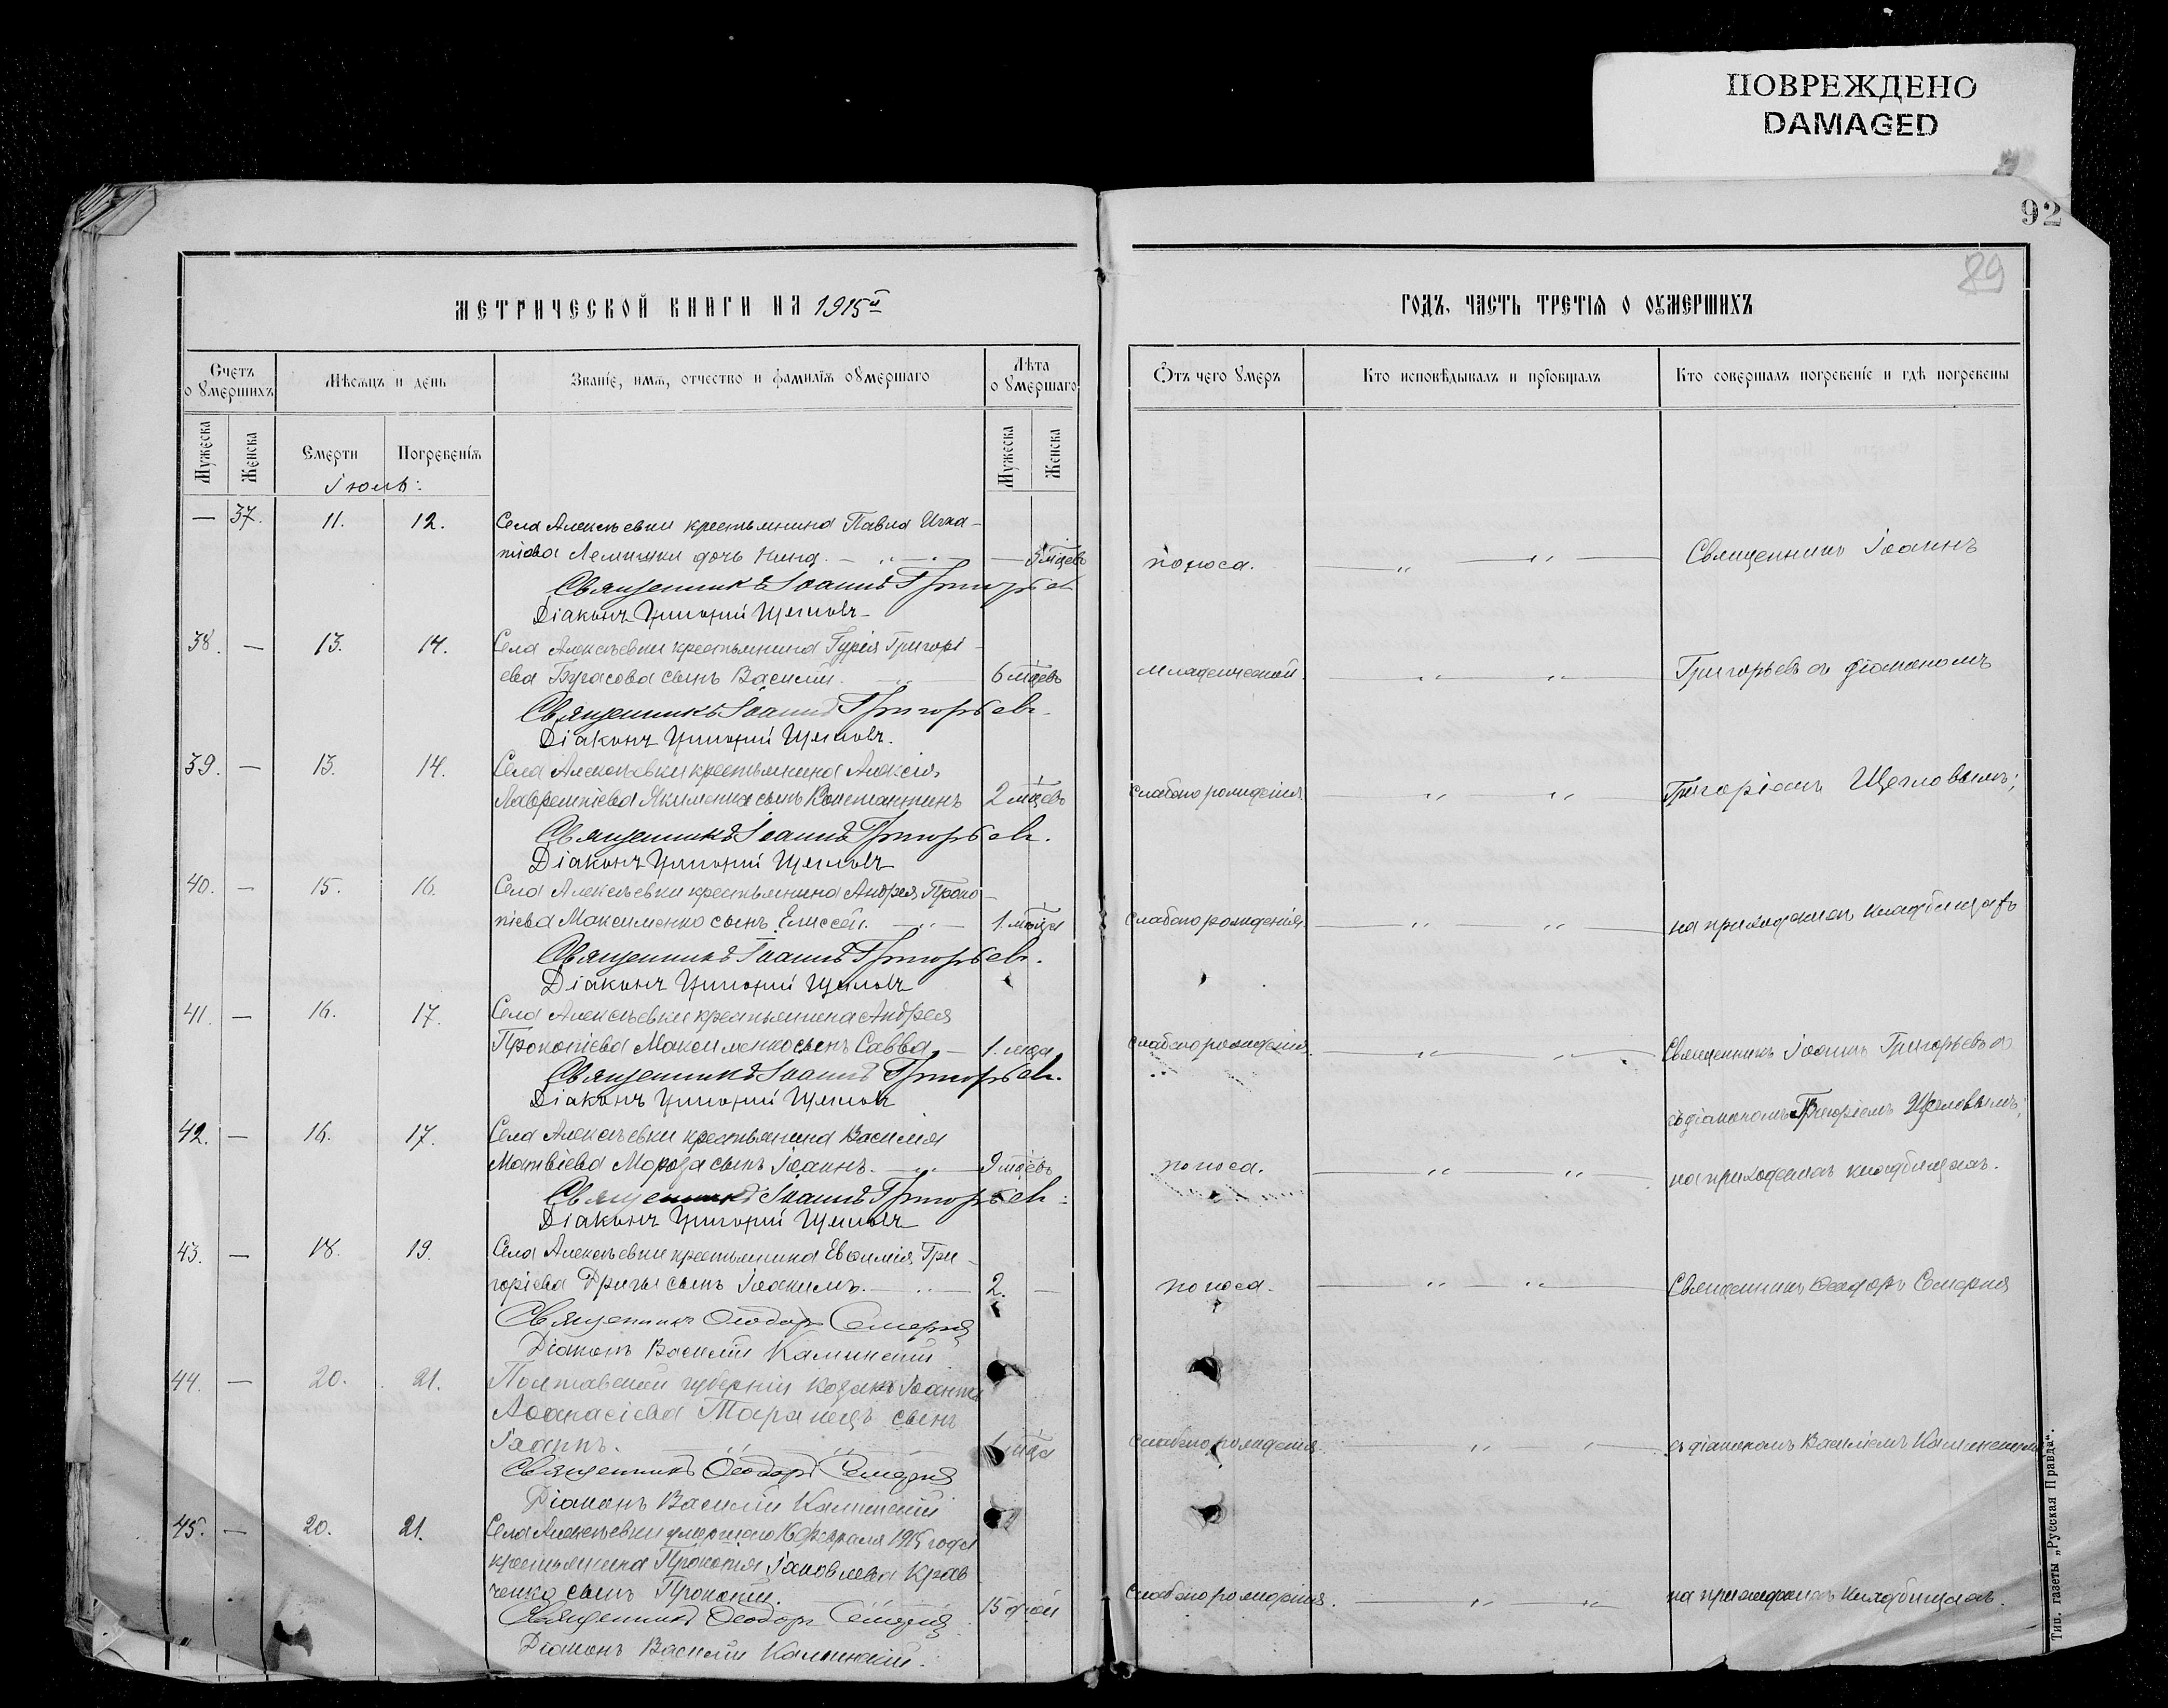 ПОВРЕЖДЕНО
DAMAGED
92
89
МЕТРИЧЕСКОЙ КНИГИ НА 1915й
ГОДЪ, ЧАСТЬ ТРЕТІЯ О ОУМЕРШИХЪ
Счетъ оумершихъ
Мѣсяцъ и день
Званіе, имя, отчество и фамилія оумершаго
Лѣта оумершаго
Отъ чего умеръ
Кто исповѣдывалъ и пріобщалъ
Кто совершалъ погребеніе и гдѣ погребены
Мужеска
Женска
Смерти
Погребенія
Мужеска
Женска
Іюль:
— 37. 11. 12. Села Алексѣевки крестьянина Павла Игна-
тіева дочь — " — 5 мцевъ поноса. — " — " — Священникъ Іоаннъ
Священникъ Іоаннъ Григорьевъ
Діаконъ Григорій Щегловъ
38. — 13. 14. Села Алексѣевки крестьянина Гурія Григорі-
ева Бугасова сынъ Василій. — " — 6 мцевъ младенческой. — " — " — Григорьевъ съ діакономъ
Священникъ Іоаннъ Григорьевъ
Діаконъ Григорій Щегловъ.
39. — 13. 14. Села Алексѣевки крестьянина Алексія
Лаврентіева Якименка сынъ Константинъ 2 мцевъ слабаго рожденія — " — " — Григоріемъ Щегловымъ;
Священникъ Іоаннъ Григорьевъ.
Діаконъ Григорій Щегловъ
40. — 15. 16. Села Алексѣевки крестьянина Андрея Проко-
піева Максименко сынъ Елиссей. — " — 1 мцца слабаго рожденія. — " — " — на приходскихъ кладбищахъ
Священникъ Іоаннъ Григорьевъ.
Діаконъ Григорій Щегловъ
41. — 16. 17. Села Алексѣевки крестьянина Андрея
Прокопіева Максименко сынъ Савва. — 1. мца слабаго рожденія. — " — " — Священникъ Іоаннъ Григорьевъ
Священникъ Іоаннъ Григорьевъ.
Діаконъ Григорій Щегловъ
съ діакономъ Григоріемъ Щегловымъ;
42. — 16. 17. Села Алексѣевки крестьянина Василія
Матвіева Мороза сынъ Іоаннъ. — " — 9 мцевъ поноса. — " — " — на приходскихъ кладбищахъ.
Священникъ Іоаннъ Григорьевъ.
Діаконъ Григорій Щегловъ
43. — 18. 19. Села Алексѣевки крестьянина Евѳимія Гри-
горіева Дриги сынъ Іоакимъ. — " — 2. — поноса. — " — " — Священникъ Ѳеодоръ Семерня
Священникъ Ѳеодоръ Семерня
Діаконъ Василій Калинскій
44. — 20. 21. Полтавской губерніи козака Іоанна
Аѳанасіева Таранецъ сынъ
Іоаннъ. — " — " — 1 мца слабаго рожденія. — " — " — съ діакономъ Василіемъ Калинскимъ
Священникъ Ѳеодоръ Семерня
Діаконъ Василій Калинскій
45. — 20. 21. Села Алексѣевки умершаго 16 февраля 1915 года
крестьянина Прокопія Іаковлева Крав
ченко сынъ Прокопій. 15 дней слабаго рожденія. — " — " — на приходскихъ кладбищахъ.
Священникъ Ѳеодоръ Семерня
Діаконъ Василій Калинскій.
Тип. газеты „Русская Правда“.